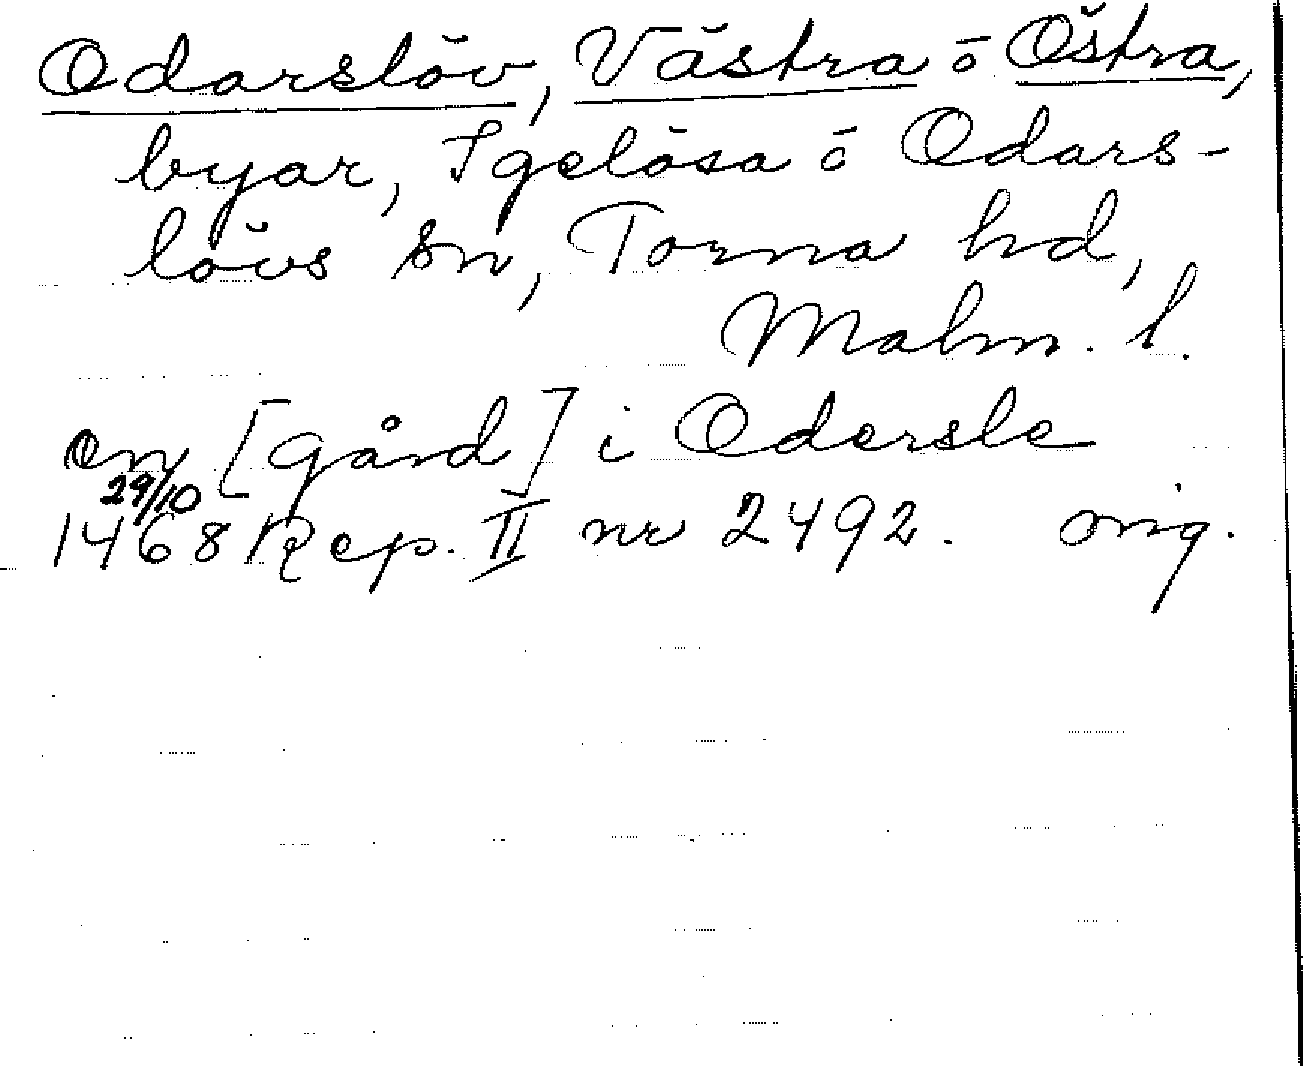 Odarslöv, Västra o Östra,
byar, Igelösa o Odars-
lövs sn, Torna hd,
Malm. l.
en [gård] i Odersle
29/10
1468 Rep. II nr 2492. orig.